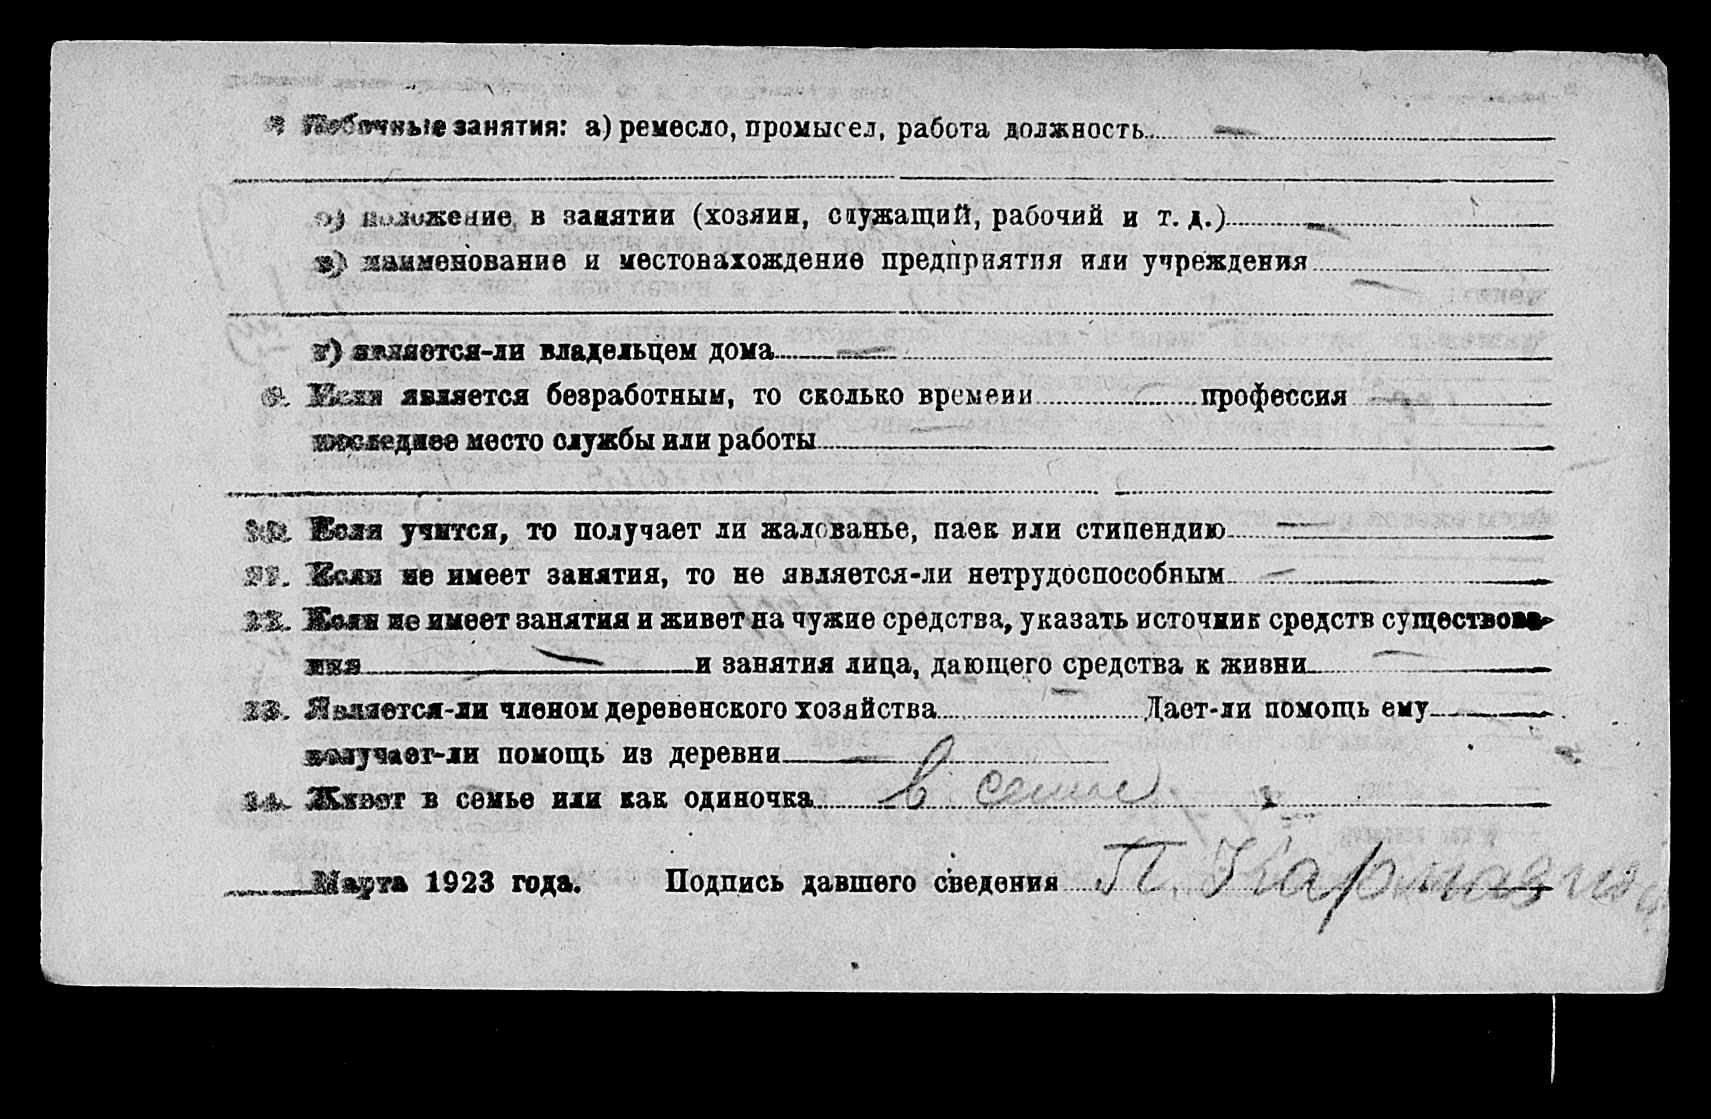 Побочные занятия: а) ремесло, промысел, работа должность —
б) положение в занятии (хозяин, служащий, рабочий и т. д.) —
в) наименование и местонахождение предприятия или учреждения —
г) является-ли владельцем дома —
9. Если является безработным, то сколько времени — профессия —
последнее место службы или работы —
10. Если учится, то получает ли жалованье, паек или стипендию —
11. Если не имеет занятия, то не является-ли нетрудоспособным —
12. Если не имеет занятия и живет на чужие средства, указать источник средств существова-
ния — и занятия лица, дающего средства к жизни —
13. Является-ли членом деревенского хозяйства — Дает-ли помощь ему —
получает-ли помощь из деревни —
14. Живет в семье или как одиночка в семье
Марта 1923 года. Подпись давшего сведения П.